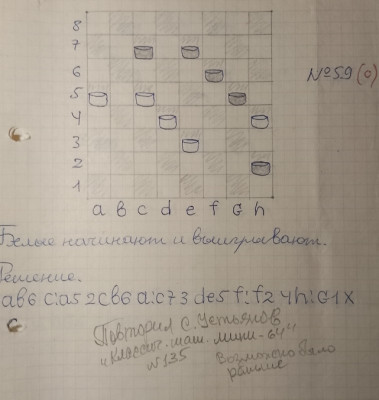 8
7
6
5
4
3
2
1
a в c d e f G h
№59 (0)
Белые начинают и выигрывают.
Решение.
aв6 c:a5 2cв6 a:c7 3 de5 f:f2 4h:G1X
C
Повторил С. Устьянов
"Классич. шаш. мини-64"
№135 Возможно было
раньше